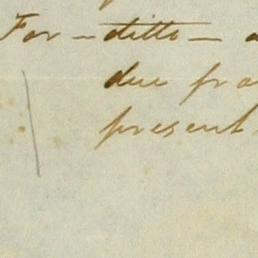 For - ditto - a
due fro
present